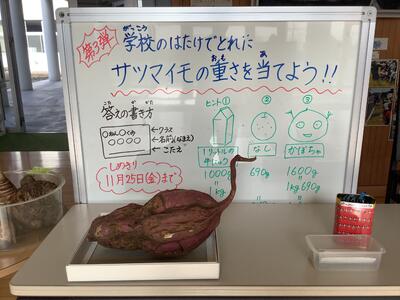 第3弾
学校のはたけでとれた
がっこう
サツマイモの重さを当てよう!!
おも
あ
答えの書き方
こた
かた
○ねん○くみ
○○○○
←クラス
←名前(なまえ)
←こたえ
しめきり
11月25日(金)まで
ヒント①
②
③
1リットルの
牛にゅう
なし
かぼちゃ
1000g
690g
1600g
1kg
1kg 690g